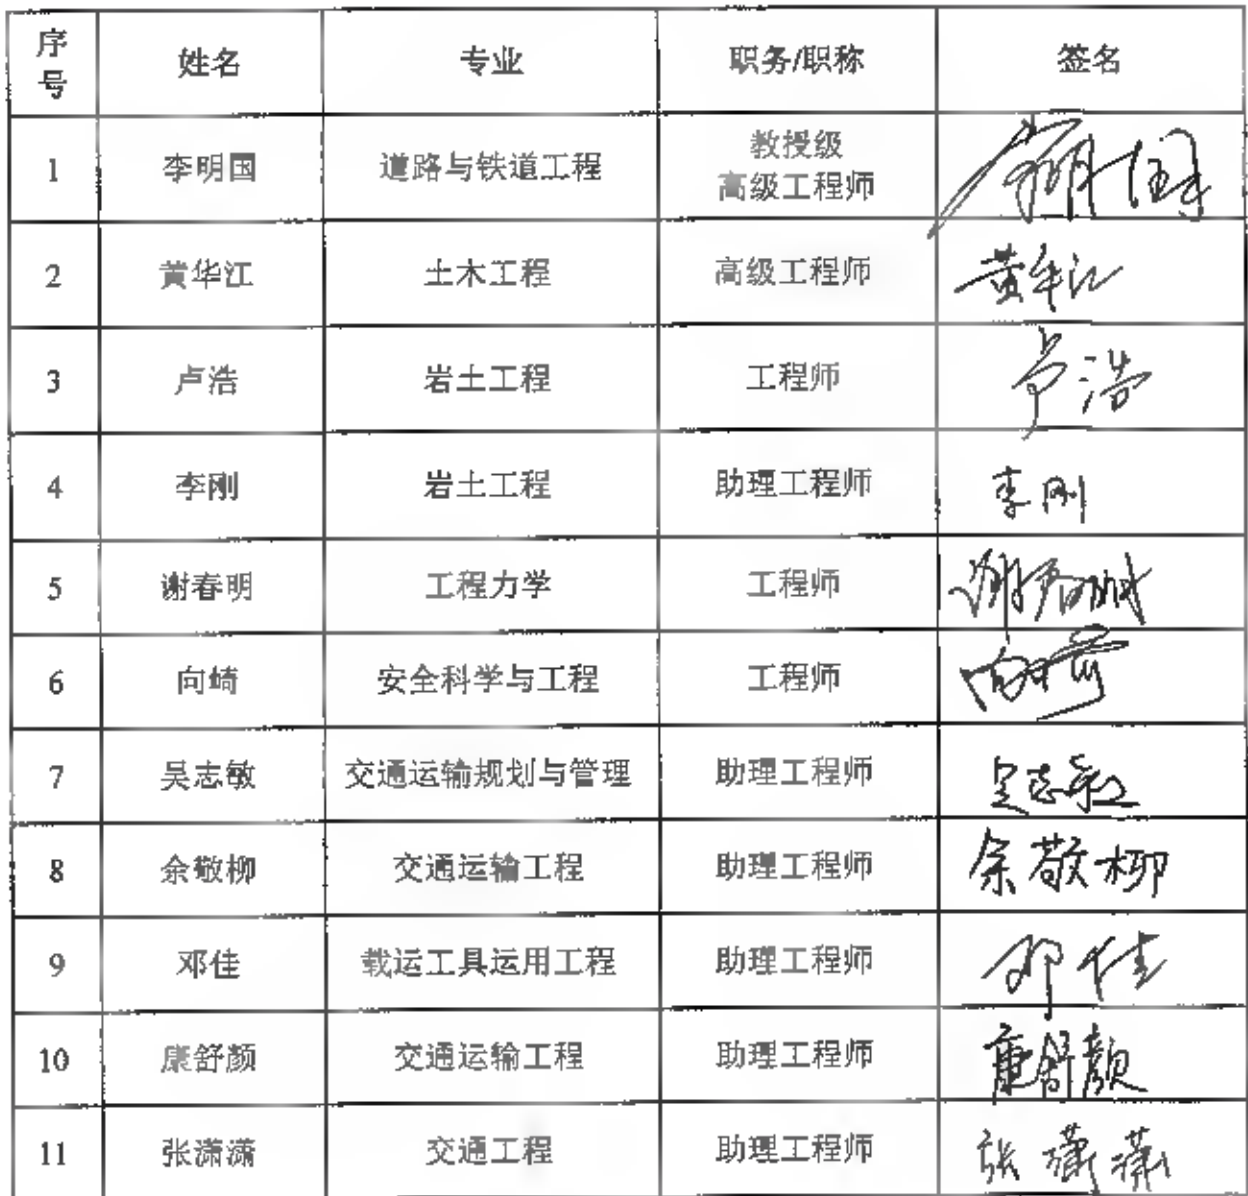 序号 姓名 专业 职务/职称 签名
1 李明国 道路与铁道工程 教授级高级工程师 李明国
2 黄华江 土木工程 高级工程师 黄华江
3 卢浩 岩土工程 工程师 卢浩
4 李刚 岩土工程 助理工程师 李刚
5 谢春明 工程力学 工程师
6 向崎 安全科学与工程 工程师 向崎
7 吴志敏 交通运输规划与管理 助理工程师 吴志敏
8 余敬柳 交通运输工程 助理工程师 余敬柳
9 邓佳 载运工具运用工程 助理工程师 邓佳
10 康舒颜 交通运输工程 助理工程师 康舒颜
11 张潇潇 交通工程 助理工程师 张潇潇